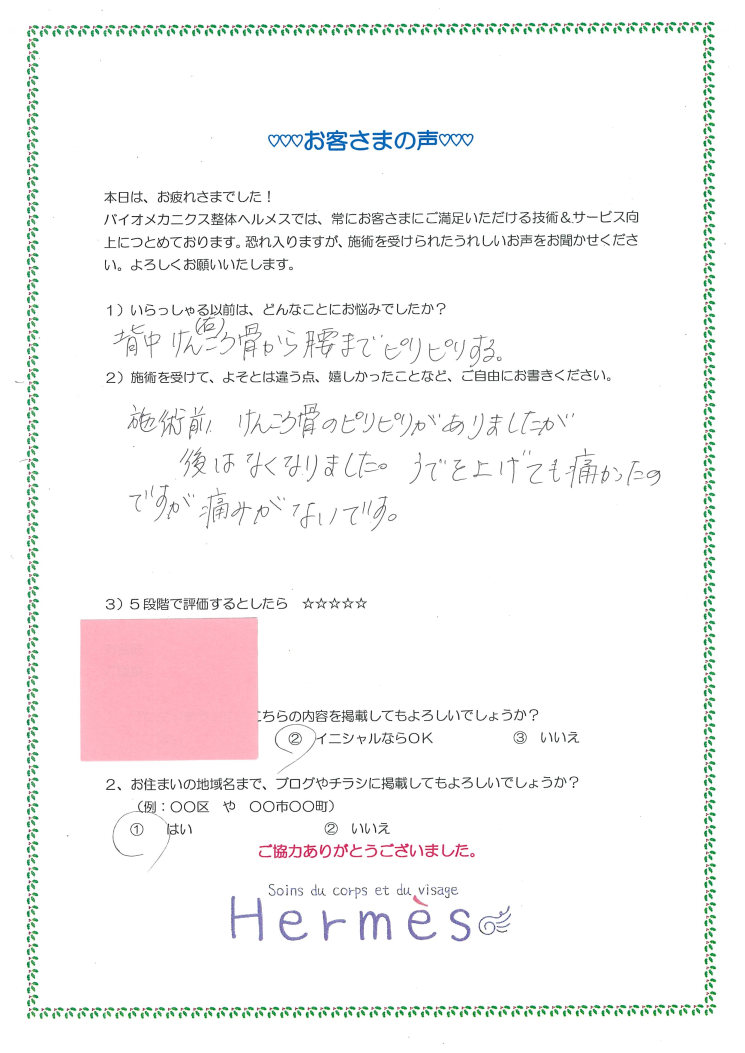 ♡♡♡お客さまの声♡♡♡
本日は、お疲れさまでした！
バイオメカニクス整体ヘルメスでは、常にお客さまにご満足いただける技術＆サービス向
上につとめております。恐れ入りますが、施術を受けられたうれしいお声をお聞かせくださ
い。よろしくお願いいたします。
１）いらっしゃる以前は、どんなことにお悩みでしたか？
(右)
背中けんころ骨から腰までピリピリする。
２）施術を受けて、よそとは違う点、嬉しかったことなど、ご自由にお書きください。
施術前、けんころ骨のピリピリがありましたが
後はなくなりました。うでを上げても痛かったの
ですが痛みがないです。
３）５段階で評価するとしたら　☆☆☆☆☆
こちらの内容を掲載してもよろしいでしょうか？
② イニシャルならＯＫ　③ いいえ
２、お住まいの地域名まで、ブログやチラシに掲載してもよろしいでしょうか？
（例：〇〇区　や　〇〇市〇〇町）
① はい　② いいえ
ご協力ありがとうございました。
Soins du corps et du visage
Hermès